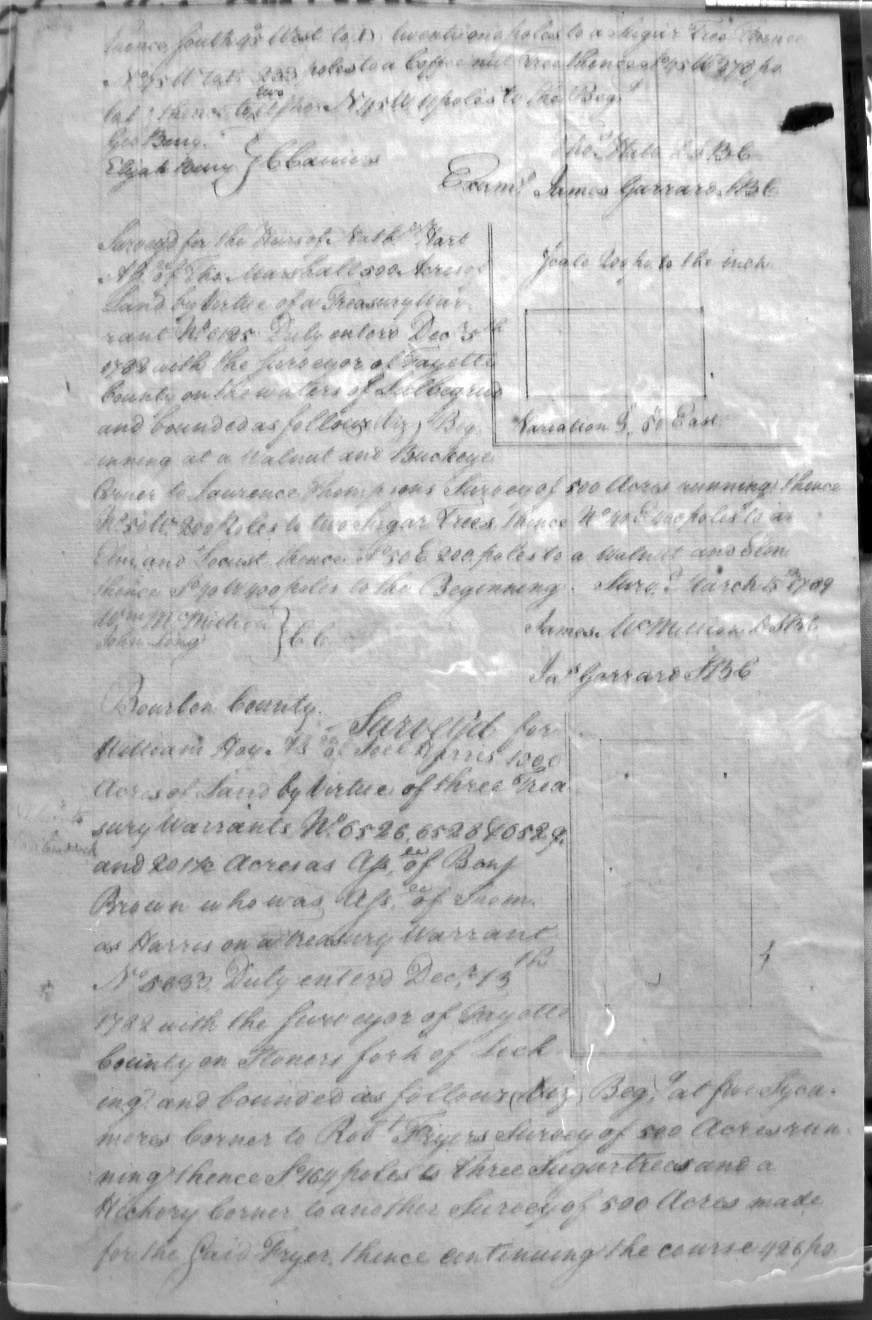 thence South 45 West to twentionopoles to a Sugar Tree thence
N° 45 W poles to a Coffee nut Tree thence S° 45 W 278 po
thence N 45 W 11 poles to the Beg.
Geo Berry
Elijah Berry } C Carriers
Tho.s Hall D S B C
Exam.d James Garrard S B C
Survey'd for the Heirs of Nath.l Hart
Ass.ee of Tho. Marshall 500 Acres of
Land by Virtue of a Treasury War
rant N.o 6185 Duly enterd Dec.r 5th
1782 with the Surveyor of Fayette
County on the waters of Lulbegrud
and bounded as follows (Viz) Beg
inning at a Walnut and Buckeye
Scale 200 po. to the inch
Variation 5° 50 East
Corner to Laurence Thompsons Survey of 500 Acres running thence
N.o 50 W. 200 Poles to two Sugar Trees, thence N.o 40 E 400 poles to an
Elm and Locust thence S.o 50 E 200 poles to a Walnut and Elm
thence S.o 40 W 400 poles to the Beginning. Surv.d March 15th 1789
W.m McMillion
John Long } C C
James McMillion D S B C
Ja.s Garrard S B C
Bourbon County. Survey'd for
William Hoy Ass.ee of Joel 1500
Acres of Land by Virtue of three Trea
sury Warrants N.o 6526, 6528 & 6529
and 201½ Acres as Ass.ee of Benj
Brown who was Ass.ee of Thom
as Harris on a Treasury Warrant
N.o Duly enterd Dec.r 13th
1782 with the Surveyor of Fayette
County on Stoners fork of Lick
ing and bounded as follows (Viz) Beg.g at five Syca-
mores Corner to Rob.t Fryers Survey of 500 Acres run-
ning thence S.o 164 poles to three Sugartrees and a
Hickory Corner to another Survey of 500 Acres made
for the Said Fryer, thence continuing the course 426 po.